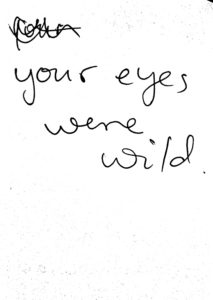 your eyes
were
wild.